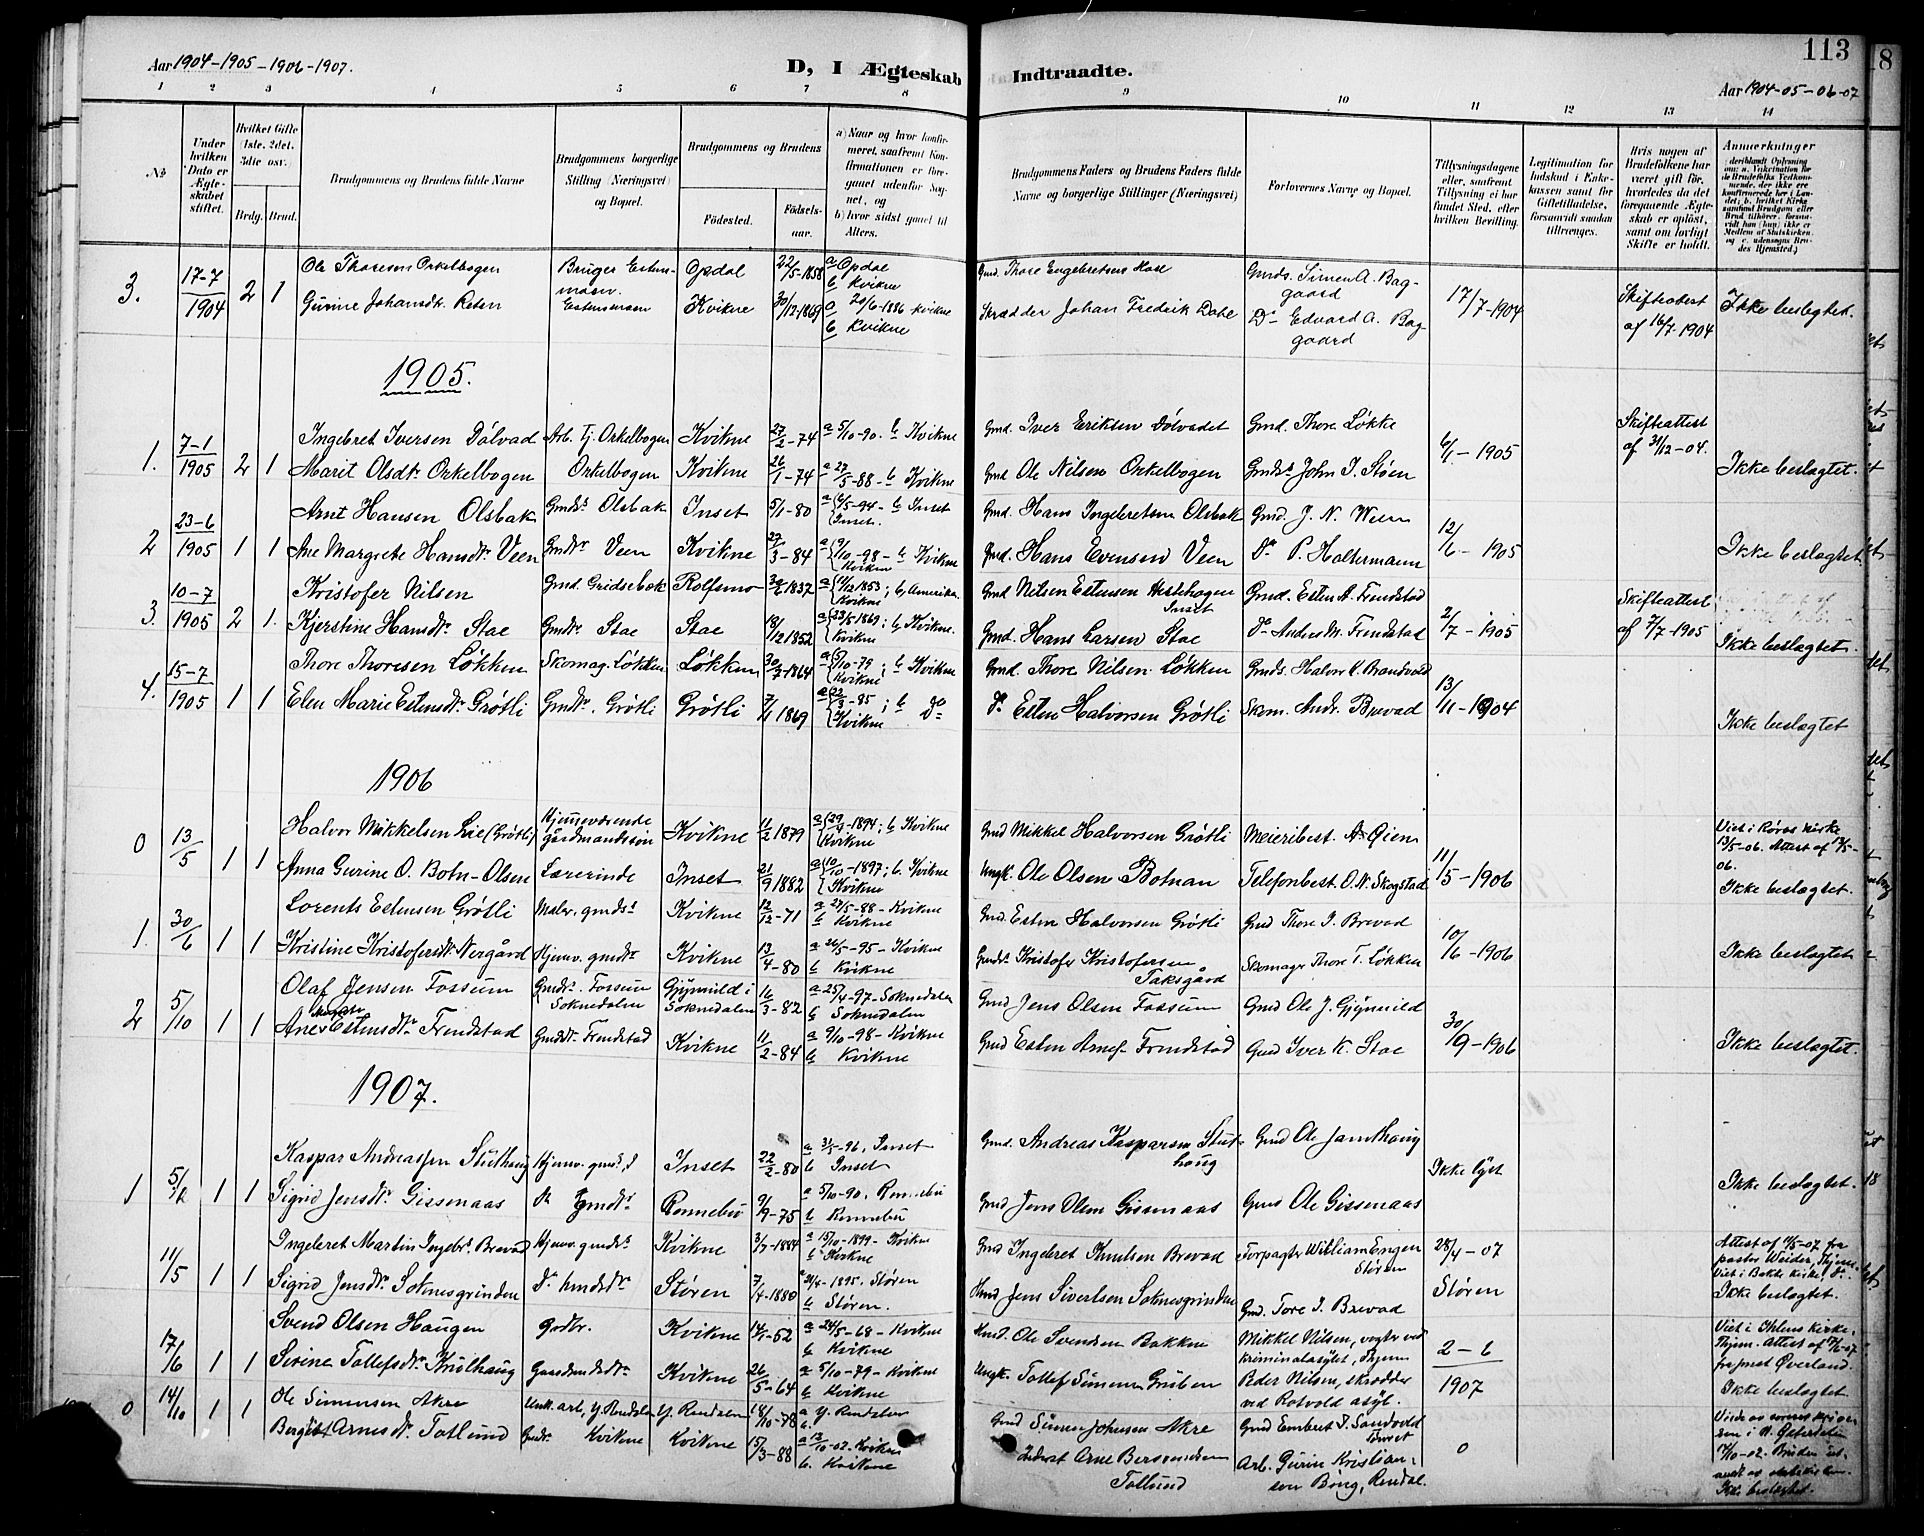 Aar 1904-1905-1906-1907.
D, I Ægteskab Indtraadte.
113
Aar 1904-05-06-07
1 2 3 4 5 6 7 8 9 10 11 12 13 14
No
Under hvilken Dato er Ægteskabet stiftet.
Hvilket Gifte (1ste, 2det, 3die osv.)
Brdg. Brud.
Brudgommens og Brudens fulde Navne
Brudgommens borgerlige Stilling (Næringsvei) og Bopæl.
Brudgommens og Brudens
Födested.
Födselsaar.
a) Naar og hvor konfirmeret, saafremt Konfirmationen er foregaaet udenfor Sognet, og
b) hvor sidst gaaet til Alters.
Brudgommens Faders og Brudens Faders fulde Navne og borgerlige Stillinger (Næringsvei)
Forlovernes Navne og Bopæl.
Tillysningsdagene eller, saafremt Tillysning ei har fundet Sted, efter hvilken Bevilling.
Legitimation for Indskud i Enkekassen samt for Giftetilladelse, forsaavidt saadan tiltrænges.
Hvis nogen af Brudefolkene har været gift før, hvorledes da det foregaaende Ægteskab er opløst, samt om lovligt Skifte er holdt.
Anmærkninger
3. 17-7 1904 2 1 Ole Thoresen Orkelbogen Bruger Estensmoen Opdal 22/5-1858 a Opdal b Kvikne Gmd. Thore Engebretsen Hoel Gmds. Simen A. Baggaard 17/7-1904 Skifteattest af 16/7-1904 Ikke beslægtet.
Gurine Johansdtr. Reten Estensmoen Kvikne 30/12-1869 a 20/6-1886 Kvikne b Kvikne Skrædder Johan Fredrik Dahl Do Edvard A. Baggaard
1905.
1. 7-1 1905 2 1 Ingebret Iversen Dölvad Arb. Tj. Orkelbogen Kvikne 27/2-74 a 5/10-90. b Kvikne Gmd. Iver Eriksen Dölvadet Gmd. Thore Løkke 6/1-1905 Skifteattest af 31/12-04.
Marit Olsdtr. Orkelbogen Orkelbogen Kvikne 26/1-74 a 27/5-88- b Kvikne Gmd Ole Nilsen Orkelbogen Gmds. John I. Støen Ikke beslægtet.
2 23-6 1905 1 1 Arnt Hansen Olsbak Gmds. Olsbak Inset 5/1-80 -94- b Inset Inset. Gmd. Hans Ingebretsen Olsbak Gmd. J. N. Ween 12/6-1905
Ane Margrete Hansdtr. Veen Gmdtr Veen Kvikne 27/3-84 a 9/10-98- b Kvikne Kvikne Gmd. Hans Evensen Veen Do P. Haltermann Ikke beslægtet
3. 10-7 1905 2 1. Kristofer Nilsen Gmd. Gridsebak Rolfsmo 1837 1853; b Amerika. Kvikne Gmd Nilsen Estensen Hestehagen Inset Gmd. Esten A. Frendstad 2/7-1905 Skifteattest af 7/7-1905
Kjerstine Hansdtr. Stae Gmdtr. Stae Stae 18/12 1852 a 23/5 1869; b Kvikne. Kvikne Gmd. Hans Larsen Stae Do Anders M. Frendstad Ikke beslægtet.
4. 15-7 1905 1 1 Thore Thoresen Løkken Skomag. Løkken Løkken 30/7 1864 a 5/10-79; b Kvikne Kvikne Gmd. Thore Nilsen Løkken Gmds. Halvor K. Brandvold 13/11-1904
Elen Marie Estensdtr. Grøtli Gmdtr. Grøtli Grøtli 7/1 1869 a 22/3-85; b Do Kvikne Do Esten Halvorsen Grøtli Skom. Andr. Brevad Ikke beslægtet
1906
0 13/5 1 1 Halvor Mikkelsen Lie (Grøtli) Hjemmeværende gårdmandssøn Kvikne 11/2 1879 1894; b Kvikne Kvikne Gmd Mikkel Halvorsen Grøtli Meieribest. A Øien 11/5-1906 Viet i Røros Kirke 13/5-06. Attest af 13/5-06.
Anna Gurine O. Botn-Olsen Lærerinde Inset 21/9 1882 a 10/10-1897; b Kvikne Kvikne Ungk. Ole Olsen Botnan Telefonbest. O. N. Skogstad Ikke beslægtet.
1. 30/6 1 1 Lorents Estensen Grøtli Maler, gmds. Kvikne 12/12-71 a 27/5-88- Kvikne b Kvikne Gmd. Esten Halvorsen Grøtli Gmd Thore I. Brevad 10/6-1906
Kristine Kristofersdtr. Nergård Hjemv. gmdtr Kvikne 13/4-80 a 26/5-95- Kvikne b Kvikne Gmds. Kristofer Kristofersen Taksgård Skomager Thore T. Løkken Ikke beslægtet
2 5/10 1 1 Olaf Jensen Fossum Gmds. Fossum Soknedalen Gjynvild i Soknedalen 16/3-82 a 25/4-97- Soknedalen b Soknedalen Gmd Jens Olsen Fossum Gmd Ole J. Gjynvild 30/9-1906
Ane Estensdtr. Frendstad Gmdtr. Frendstad Kvikne 11/2-84 a 9/10-98- Kvikne b Kvikne Gmd Esten Arnes. Frendstad Gmd Iver K. Stae Ikke beslægtet.
1907.
1 5/2 1 1 Kaspar Andreassen Stulhaug Hjemv. gmds. Inset 22/2-80 a 31/5-96, Inset b Inset Gmd. Andreas Kasparsen Stuthaug Gmd Ole Jamthaug Ikke lyst
Sigrid Jensdtr. Gissenaas gmdtr. Rennebu 9/9-75 a 5/10-90, Rennebu b Rennebu Gmd Jens Olsen Gissenaas Gmd Ole Gissenaas Ikke beslægtet.
11/5 1 1 Ingebret Martin Ingebr. Brevad Hjemv. gmds. Kvikne 3/7-1884 a 15/10-1899- Kvikne b Kvikne Gmd Ingebret Knutsen Brevad Forpagter William Engen Støren 28/4-07 Attest af 11/5-07 fra pastor Weider, Thjem. Viet i Bakke kirke, Do.
Sigrid Jensdtr. Soknesgrinden Do hmdsdtr Støren 7/4-1880 a 21/4-1895. Støren b Støren. Hmd Jens Sivertsen Soknesgrinden Gmd. Tore I. Brevad Støren Ikke beslægtet.
17/6 1 1 Svend Olsen Haugen Gmdbr. Kvikne 14/1-52 a 24/5-68- Kvikne b Kvikne Hmd. Ole Svendsen Bakken Mikkel Nilsen, vogter ved kriminalasylet, Thjem 2-6 1907 Viet i Ihlens kirke, Thjem. Attest af 17/6-07 fra prest Øverland.
Serine Tollefsdtr. Krulhaug Gaardmdsdtr. Kvikne 26/5-64 a 5/10-79- Kvikne b Kvikne Ungk. Tollef Simensen Gruben Peder Nilsen, skrædder ved Rotvold asyl. Ikke beslægtet
0 14/10 1 1 Ole Simensen Akre Y. Rendalen 18/10-78 a Y. Rendalen b. Gmd Simen Johnsen Akre Gmd Embret I. Sandvold Tønset 0
Bergit Arnesdtr. Tollund Gmdtr Kvikne Kvikne 15/3-88 a 12/10-02. Kvikne b. Kvikne Arne Bersvendsen Tollund Arb. Gurin Kristiansen Bong, Rendal. Ikke beslægtet.